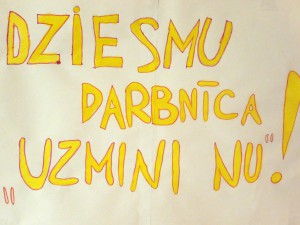 DZIESMU
DARBNĪCA
„UZMINI NU"!